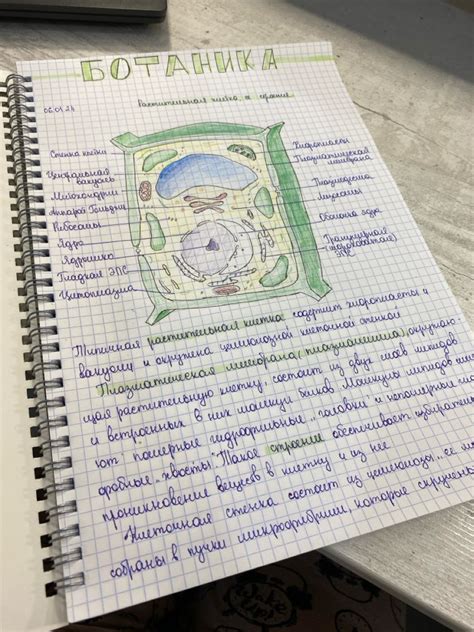 БОТАНИКА
06.01.24
Растительная клетка, её строение
Стенка клетки
Центральная вакуоль
Митохондрии
Аппарат Гольджи
Рибосомы
Ядро
Ядрышко
Гладкая ЭПС
Цитоплазма
Хлоропласты
Плазматическая мембрана
Плазмодесма
Лизосомы
Оболочка ядра
Гранулярная (шероховатая) ЭПС
Типичная растительная клетка содержит хлоропласты и
вакуоли и окружена целлюлозной клеточной стенкой
Плазматическая мембрана (плазмалемма), окружаю-
щая растительную клетку, состоит из двух слоев липидов
и встроенных в них молекул белков. Молекулы липидов име
ют полярные гидрофильные „головки" и неполярные гид
рофобные „хвосты". Такое строение обеспечивает избирательн
проникновение веществ в клетку и из нее.
Клеточная стенка состоит из целлюлозы, ее мо
собраны в пучки микрофибрилл, которые скручены